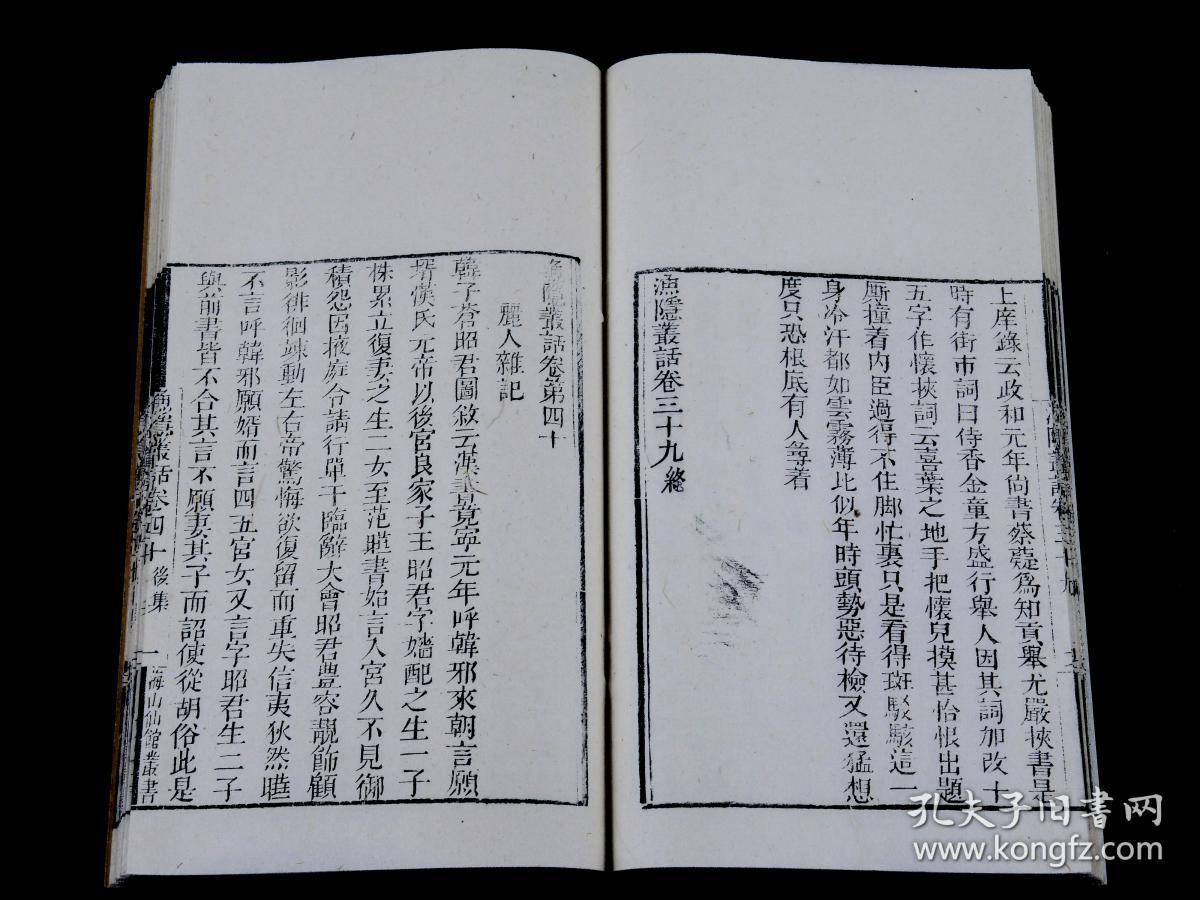 上庠錄云政和元年尙書蔡薿爲知貢舉尤嚴挾書是
時有街市詞曰侍香金童方盛行舉人因其詞加改十
五字作懷挾詞云喜葉之地手把懷兒摸甚恰恨出題
厮撞着內臣過得不住脚忙裏只是看得斑駁駭這一
身冷汗都如雲霧薄比似年時頭勢惡待檢又還猛想
度只恐根底有人㝷着
漁隱叢話卷三十九終
漁隱叢話卷第四十
麗人雜記
韓子蒼昭君圖敘云漢書竟寧元年呼韓邪來朝言願
壻漢氏元帝以後宮良家子王昭君字嬙配之生一子
株累立復妻之生二女至范曄書始言入宮久不見御
積怨因掖庭令請行單于臨辭大會昭君豐容靚飾顧
影徘徊竦動左右帝驚悔欲復留而重失信夷狄然曄
不言呼韓邪願婿而言四五宮女又言字昭君生二子
與前書皆不合其言不願妻其子而詔使從胡俗此是
漁隱叢話卷四十 後集 一 海山仙館叢書
孔夫子旧书网
www.kongfz.com